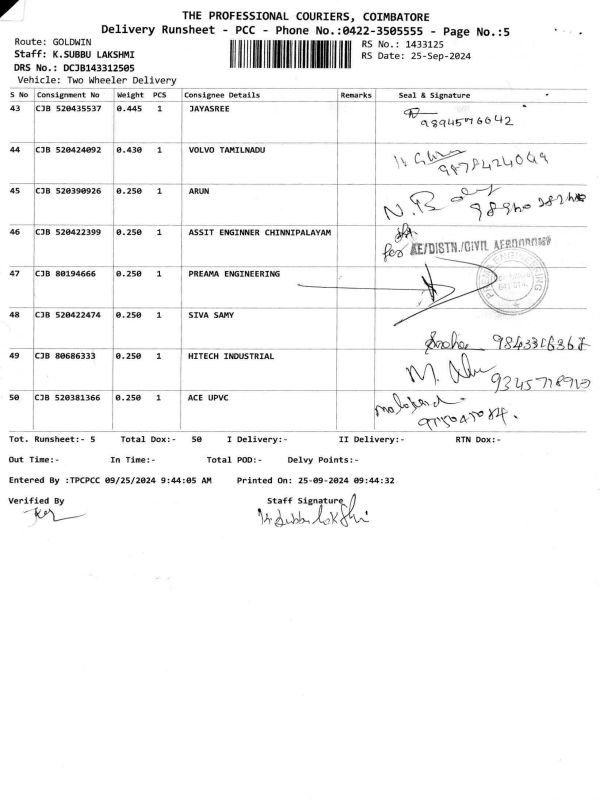 THE PROFESSIONAL COURIERS, COIMBATORE
Delivery Runsheet - PCC - Phone No.:0422-3505555 - Page No.:5
Route: GOLDWIN
RS No.: 1433125
Staff: K.SUBBU LAKSHMI
RS Date: 25-Sep-2024
DRS No.: DCJB143312505
Vehicle: Two Wheeler Delivery
S No Consignment No Weight PCS Consignee Details Remarks Seal & Signature
43 CJB 520435537 0.445 1 JAYASREE
9894576642
44 CJB 520424092 0.430 1 VOLVO TAMILNADU
9878424049
45 CJB 520390926 0.250 1 ARUN
46 CJB 520422399 0.250 1 ASSIT ENGINNER CHINNIPALAYAM
for AE/DISTN./CIVIL AERODROME
47 CJB 80194666 0.250 1 PREAMA ENGINEERING
48 CJB 520422474 0.250 1 SIVA SAMY
9843316367
49 CJB 80686333 0.250 1 HITECH INDUSTRIAL
9345778910
50 CJB 520381366 0.250 1 ACE UPVC
Tot. Runsheet:- 5 Total Dox:- 50 I Delivery:- II Delivery:- RTN Dox:-
Out Time:- In Time:- Total POD:- Delvy Points:-
Entered By :TPCPCC 09/25/2024 9:44:05 AM Printed On: 25-09-2024 09:44:32
Verified By Staff Signature
K. Subbu lakshi